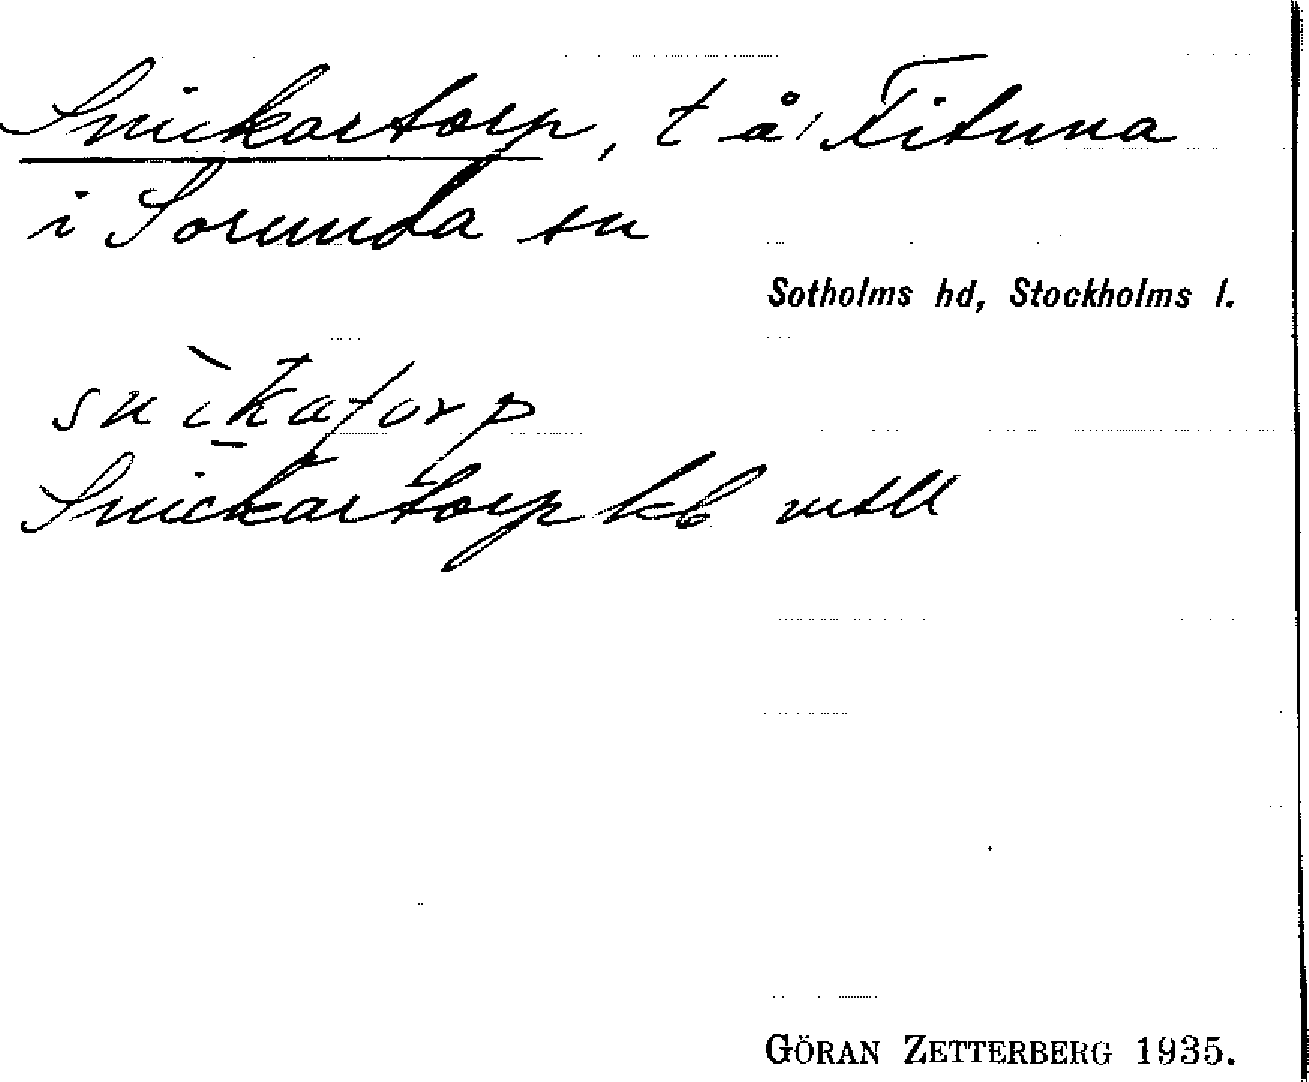 Snickartorp, t å Fituna
i Sorunda sn
Sotholms hd, Stockholms l.
snìkatorp
Snickartorp kb mtll
GÖRAN ZETTERBERG 1935.